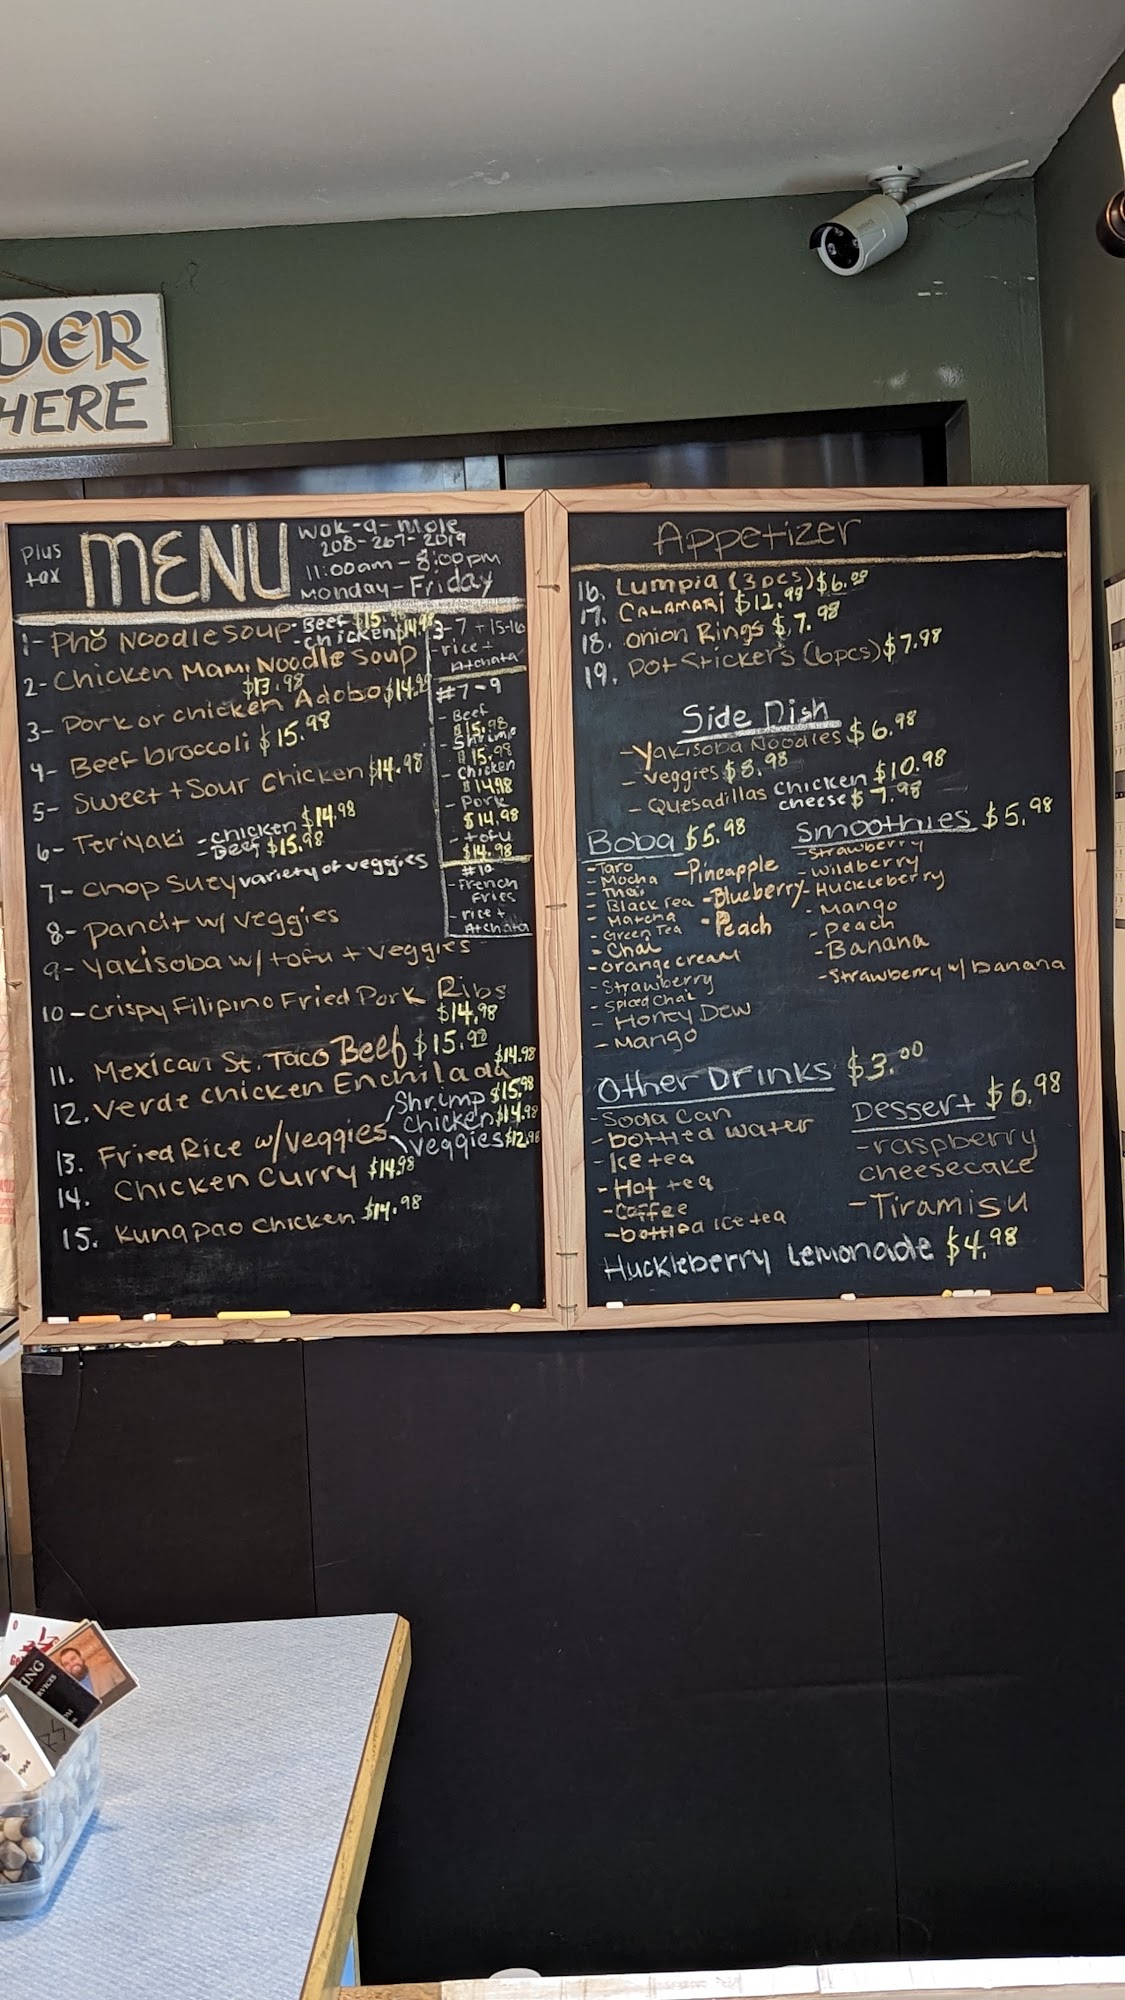 DER
HERE
plus
tax
MENU
Wok-a-Mole
208-267-2019
11:00am - 8:00pm
Monday - Friday
1- Phở Noodle Soup - Beef $15.98
- chicken $14.98
2- Chicken Mami Noodle Soup
$13.98
3- Pork or chicken Adobo $14.98
4- Beef broccoli $15.98
5- Sweet + Sour Chicken $14.98
6- Teriyaki - chicken $14.98
- Beef $15.98
7- Chop Suey variety of veggies
8- Pancit w/ veggies
9- Yakisoba w/ tofu + veggies
10- Crispy Filipino Fried Pork Ribs
$14.98
11. Mexican St. Taco Beef $15.98
12. Verde Chicken Enchilada $14.98
13. Fried Rice w/ Veggies
Shrimp $15.98
Chicken $14.98
Veggies $12.98
14. Chicken Curry $14.98
15. Kung Pao Chicken $14.98
- rice +
Atchata
#7-9
- Beef
$15.98
- Shrimp
$15.98
- Chicken
$14.98
- Pork
$14.98
- tofu
$14.98
#10
- French
Fries
- rice +
Atchata
Appetizer
16. Lumpia (3pcs) $6.00
17. CALAMARI $12.99
18. Onion Rings $7.98
19. Pot Stickers (6pcs) $7.98
Side Dish
- Yakisoba Noodles $6.98
- veggies $8.98
- Quesadillas Chicken $10.98
cheese $7.98
Boba $5.98
- Taro
- Mocha
- Thai
- Black Tea
- Matcha
- Green Tea
- Chai
- Orange cream
- Strawberry
- Spiced Chai
- Honey Dew
- Mango
- Pineapple
- Blueberry
- Peach
Smoothies $5.98
- Strawberry
- Wildberry
- Huckleberry
- Mango
- Peach
- Banana
- Strawberry w/ banana
Other Drinks $3.00
- Soda Can
- bottled water
- Ice tea
- Hot tea
- Coffee
- bottled Ice tea
Dessert $6.98
- raspberry
cheesecake
- Tiramisu
Huckleberry Lemonade $4.98